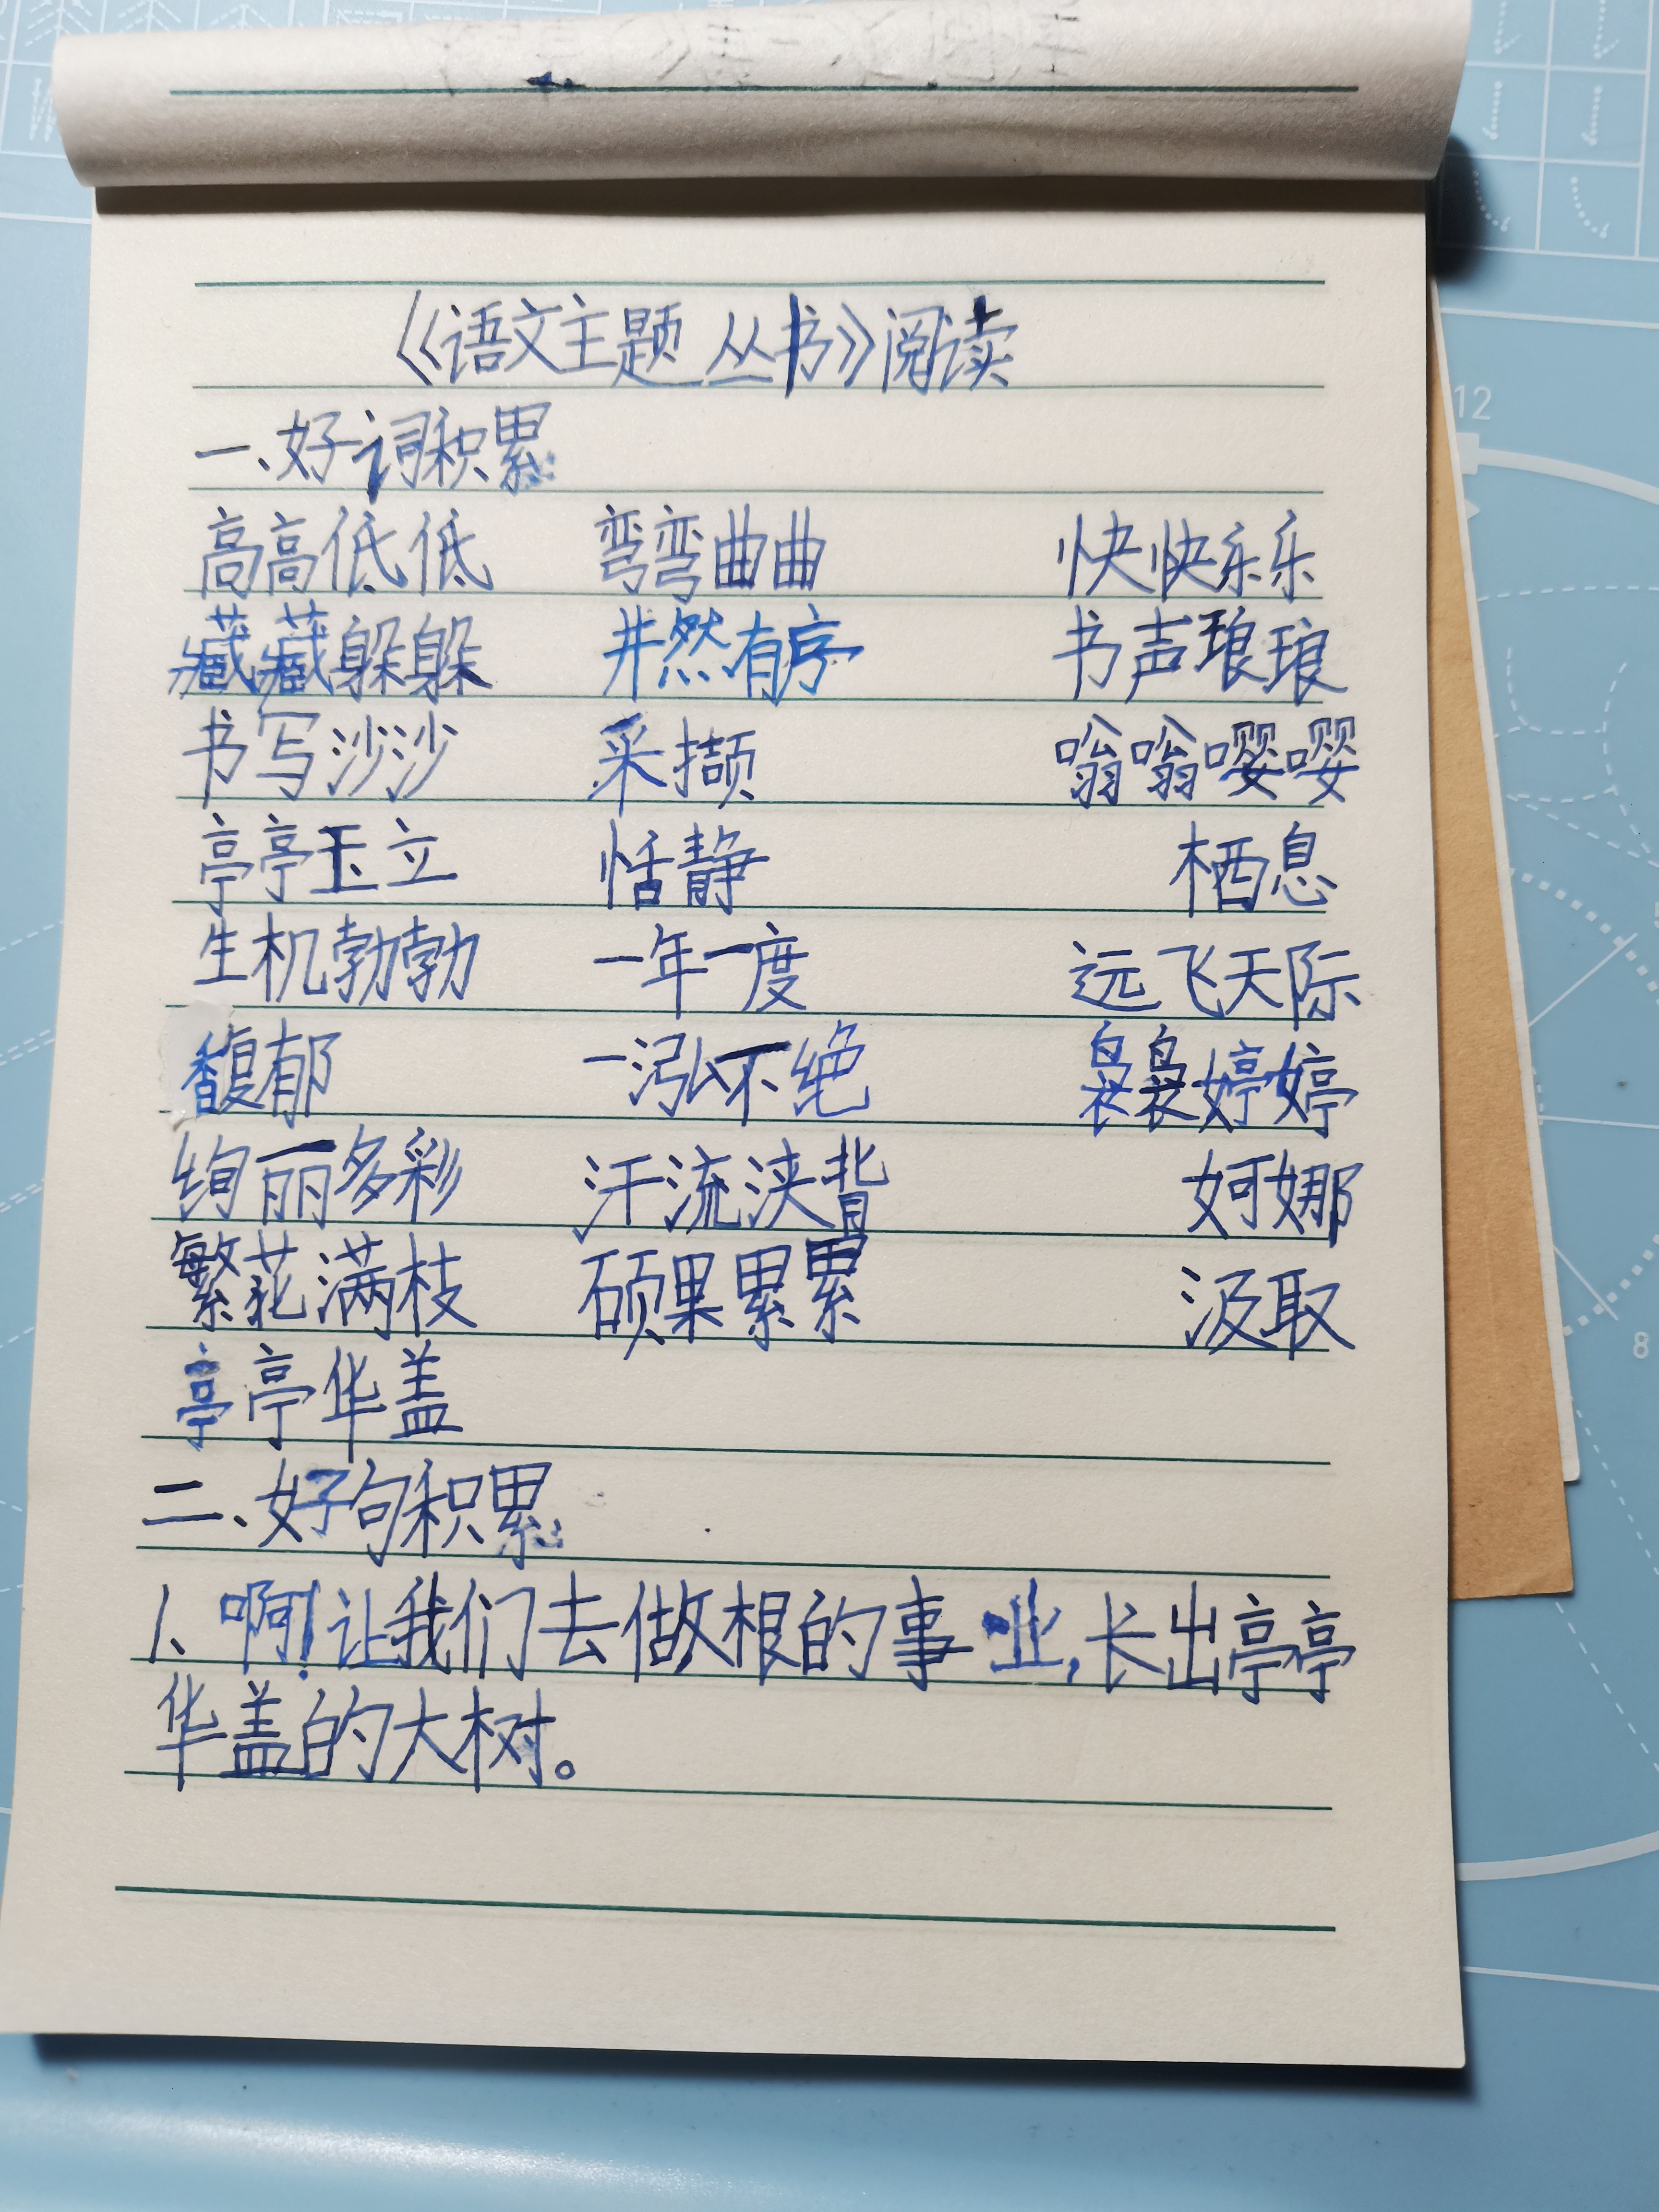 《语文主题丛书》阅读
一、好词积累
高高低低 弯弯曲曲 快快乐乐
藏藏躲躲 井然有序 书声琅琅
书写沙沙 采撷 嗡嗡嘤嘤
亭亭玉立 恬静 栖息
生机勃勃 一年一度 远飞天际
馥郁 一泓不绝 袅袅婷婷
绚丽多彩 汗流浃背 婀娜
繁花满枝 硕果累累 汲取
亭亭华盖
二、好句积累
1、啊!让我们去做根的事业,长出亭亭
华盖的大树。
12
8